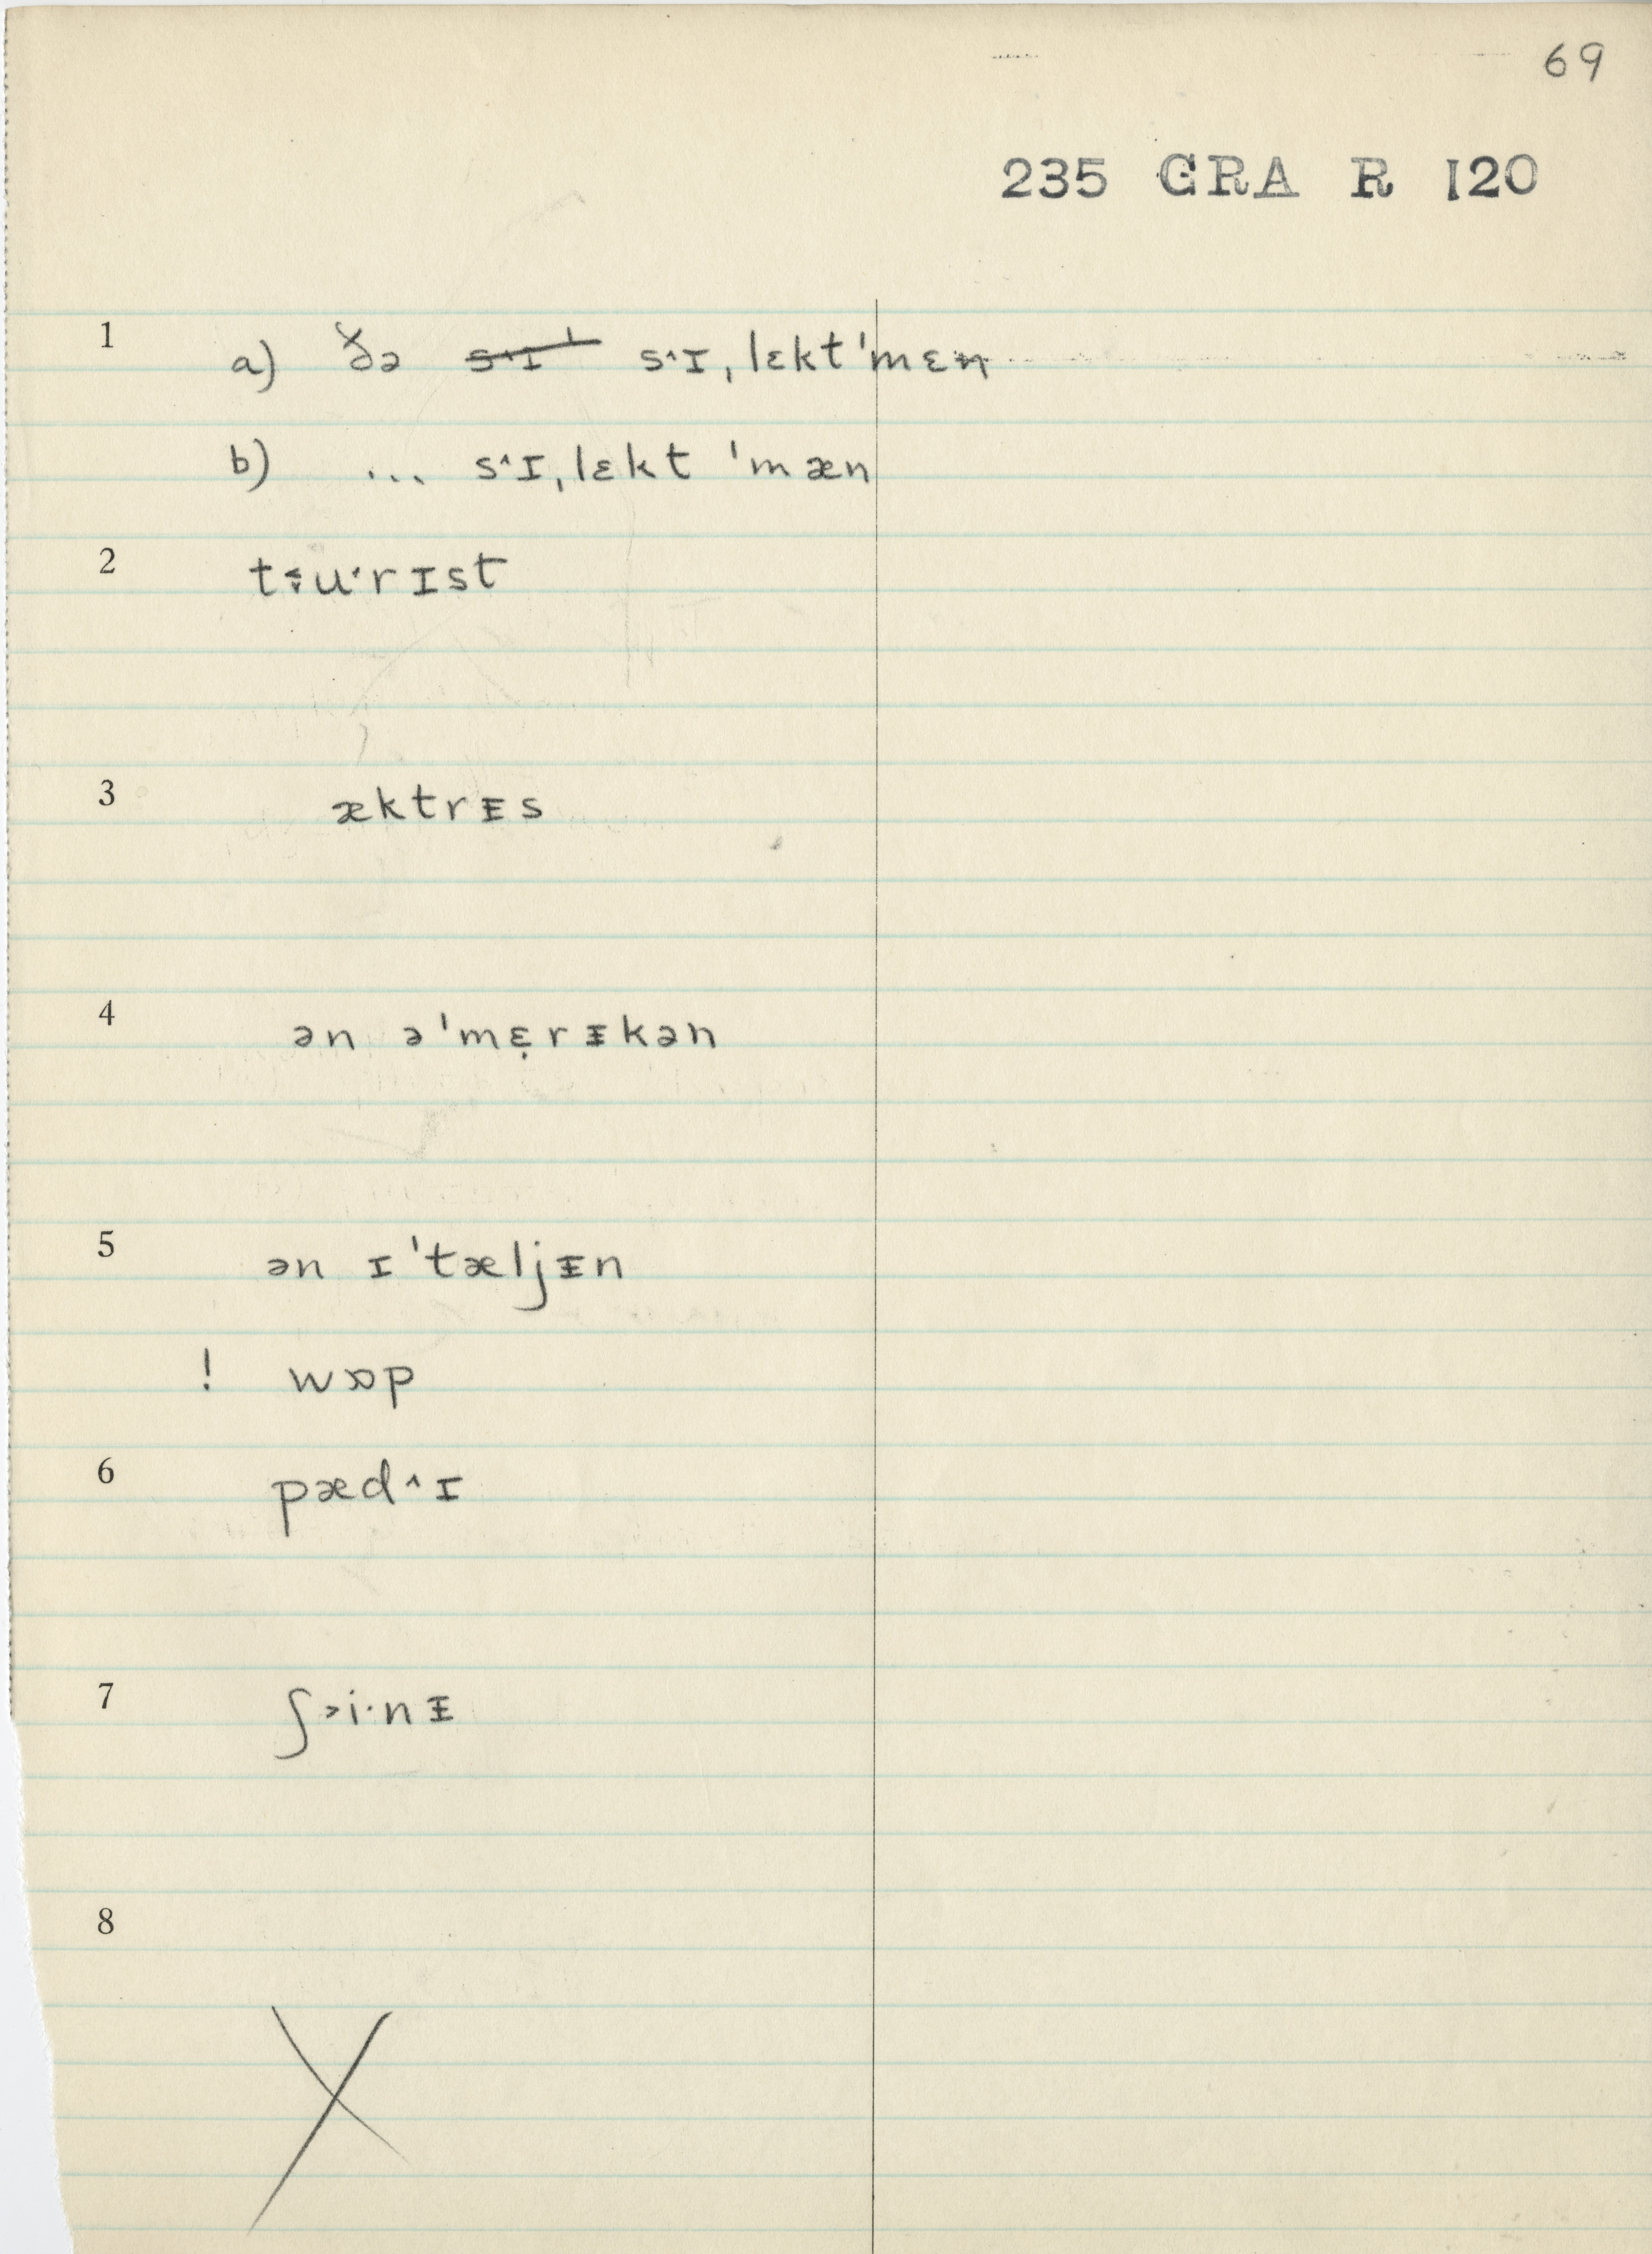 69
235 GRA R 120
1 a) ðə s˄ɪˈ s˄ɪˌlɛktˈmɛn
b) ... s˄ɪˌlɛkt ˈmæn
2 t˂˅u·rɪst
3 æktrᵻs
4 ən əˈmɛ̣rᵻkən
5 ən ɪˈtæljᵻn
! wɒp
6 pæd˄ɪ
7 ʃ˃i·nᵻ
8
X